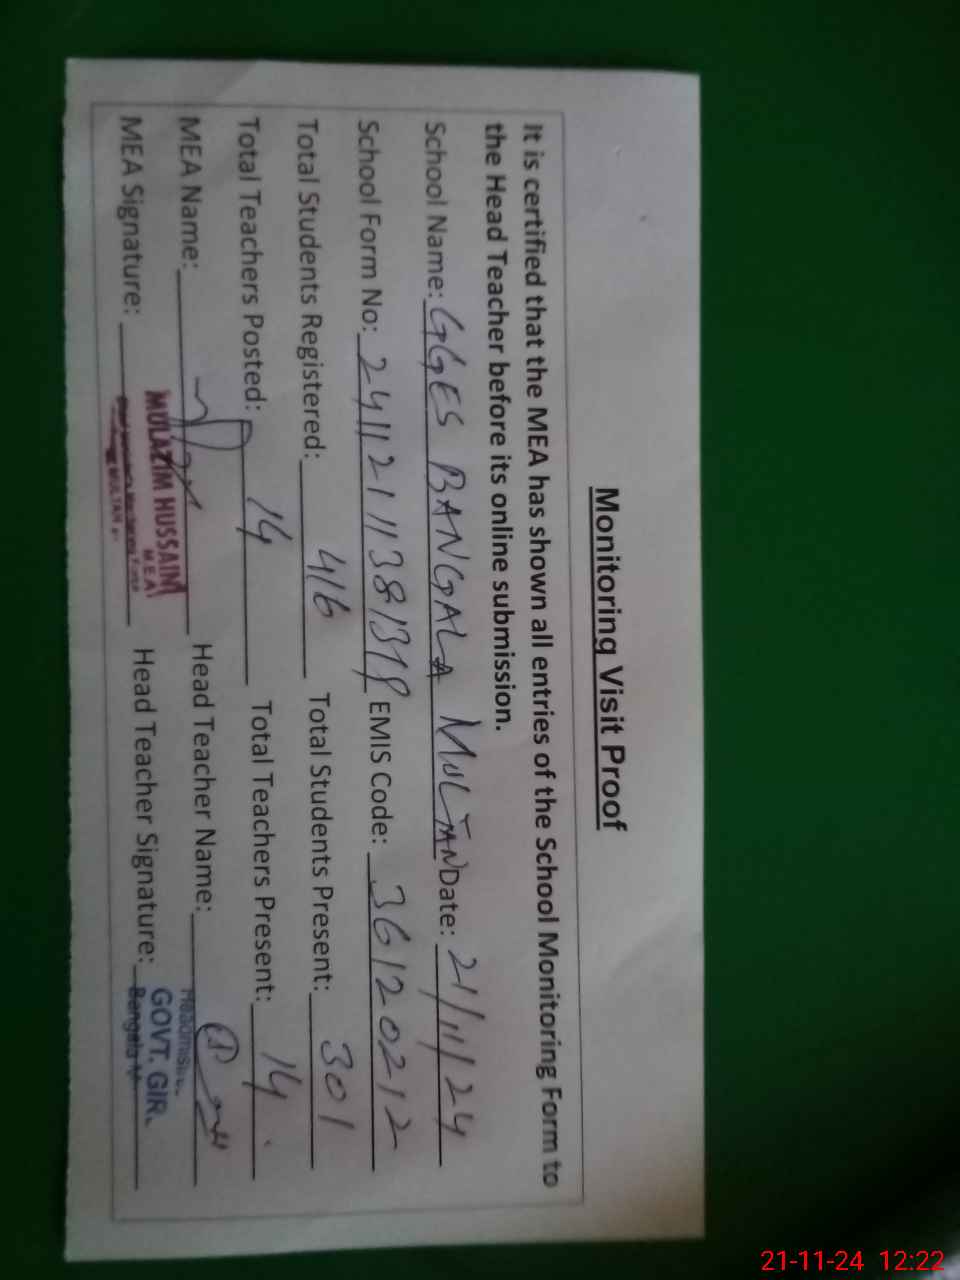 Monitoring Visit Proof
It is certified that the MEA has shown all entries of the School Monitoring Form to
the Head Teacher before its online submission.
School Name: GGES BANGALA MULTAN Date: 21/11/24
School Form No: 24112111381318 EMIS Code: 36120212
Total Students Registered: 416 Total Students Present: 301
Total Teachers Posted: 14 Total Teachers Present: 14
MEA Name: Head Teacher Name:
MEA Signature: Head Teacher Signature:
MULAZIM HUSSAIN
MEA
MULTAN
GOVT. GIR
Bangala
21-11-24 12:22